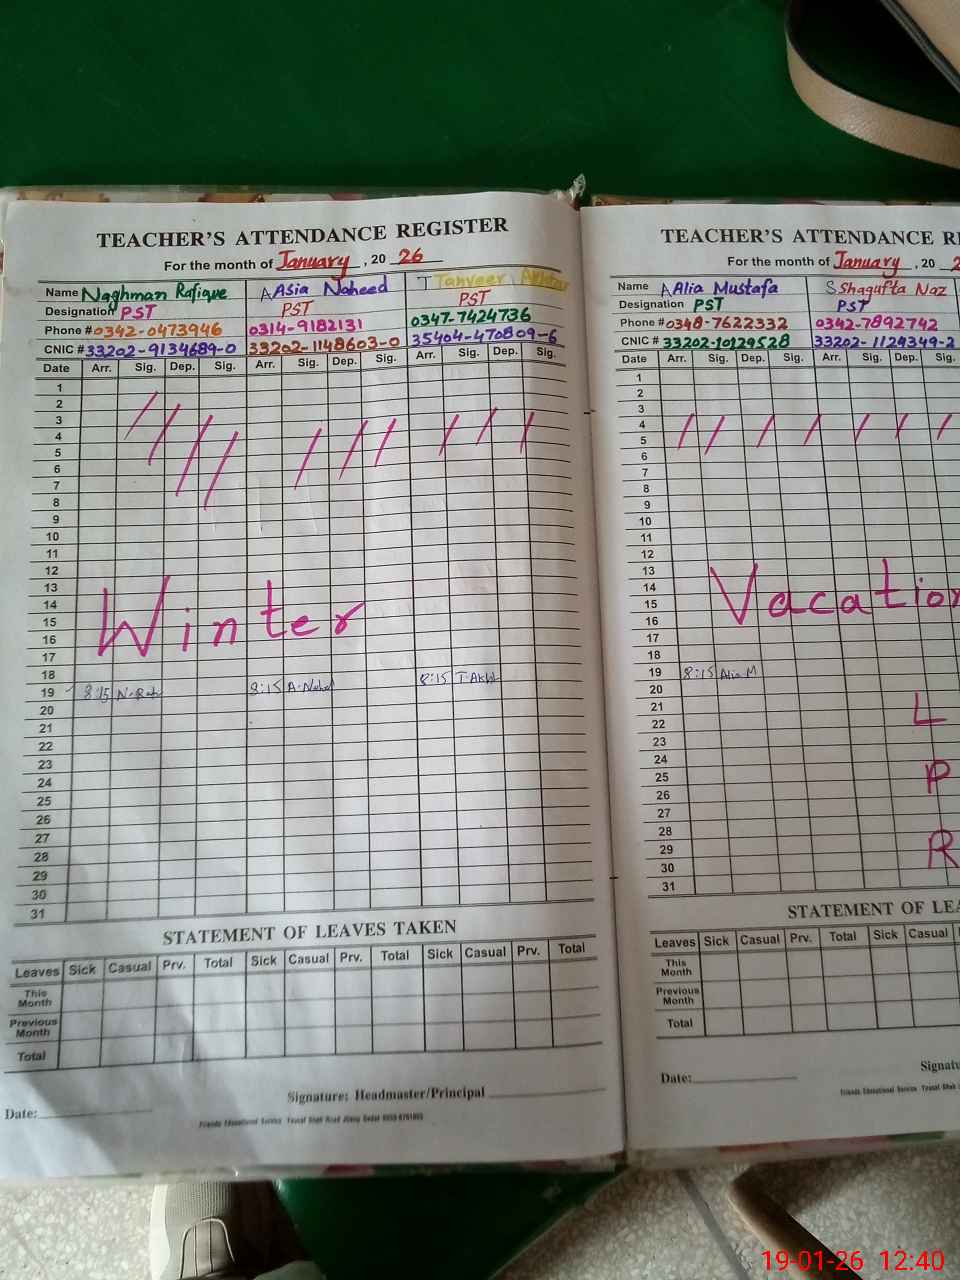 TEACHER'S ATTENDANCE REGISTER
For the month of January, 20 26
Name Naghman Rafique Asia Naheed Tanveer Akhtar
Designation PST PST PST
Phone # 0342-0473946 0314-9182131 0347-7424736
CNIC # 33202-9134689-0 33202-1148603-0 35404-470809-6
Date Arr. Sig. Dep. Sig. Arr. Sig. Dep. Sig. Arr. Sig. Dep. Sig.
1
2
3
4
5
6
7
8
9
10
11
12
13
14
Winter
15
16
17
18
19 8:15 8:15 A-Nahed 8:15
20
21
22
23
24
25
26
27
28
29
30
31
STATEMENT OF LEAVES TAKEN
Leaves Sick Casual Prv. Total Sick Casual Prv. Total Sick Casual Prv. Total
This Month
Previous Month
Total
Signature: Headmaster/Principal
Date:
TEACHER'S ATTENDANCE
For the month of January, 20
Name Alia Mustafa Shagufta Naz
Designation PST PST
Phone # 0348-7622332 0342-7892742
CNIC # 33202-10129528 33202-1129349-2
Date Arr. Sig. Dep. Sig. Arr. Sig. Dep. Sig.
1
2
3
4
5
6
7
8
9
10
11
12
13
14
Vacation
15
16
17
18
19 8:15 Alia M
20
21 L
22
23
24
25 P
26
27
28
29 R
30
31
STATEMENT OF
Leaves Sick Casual Prv. Total Sick Casual
This Month
Previous Month
Total
Date:
19-01-26 12:40